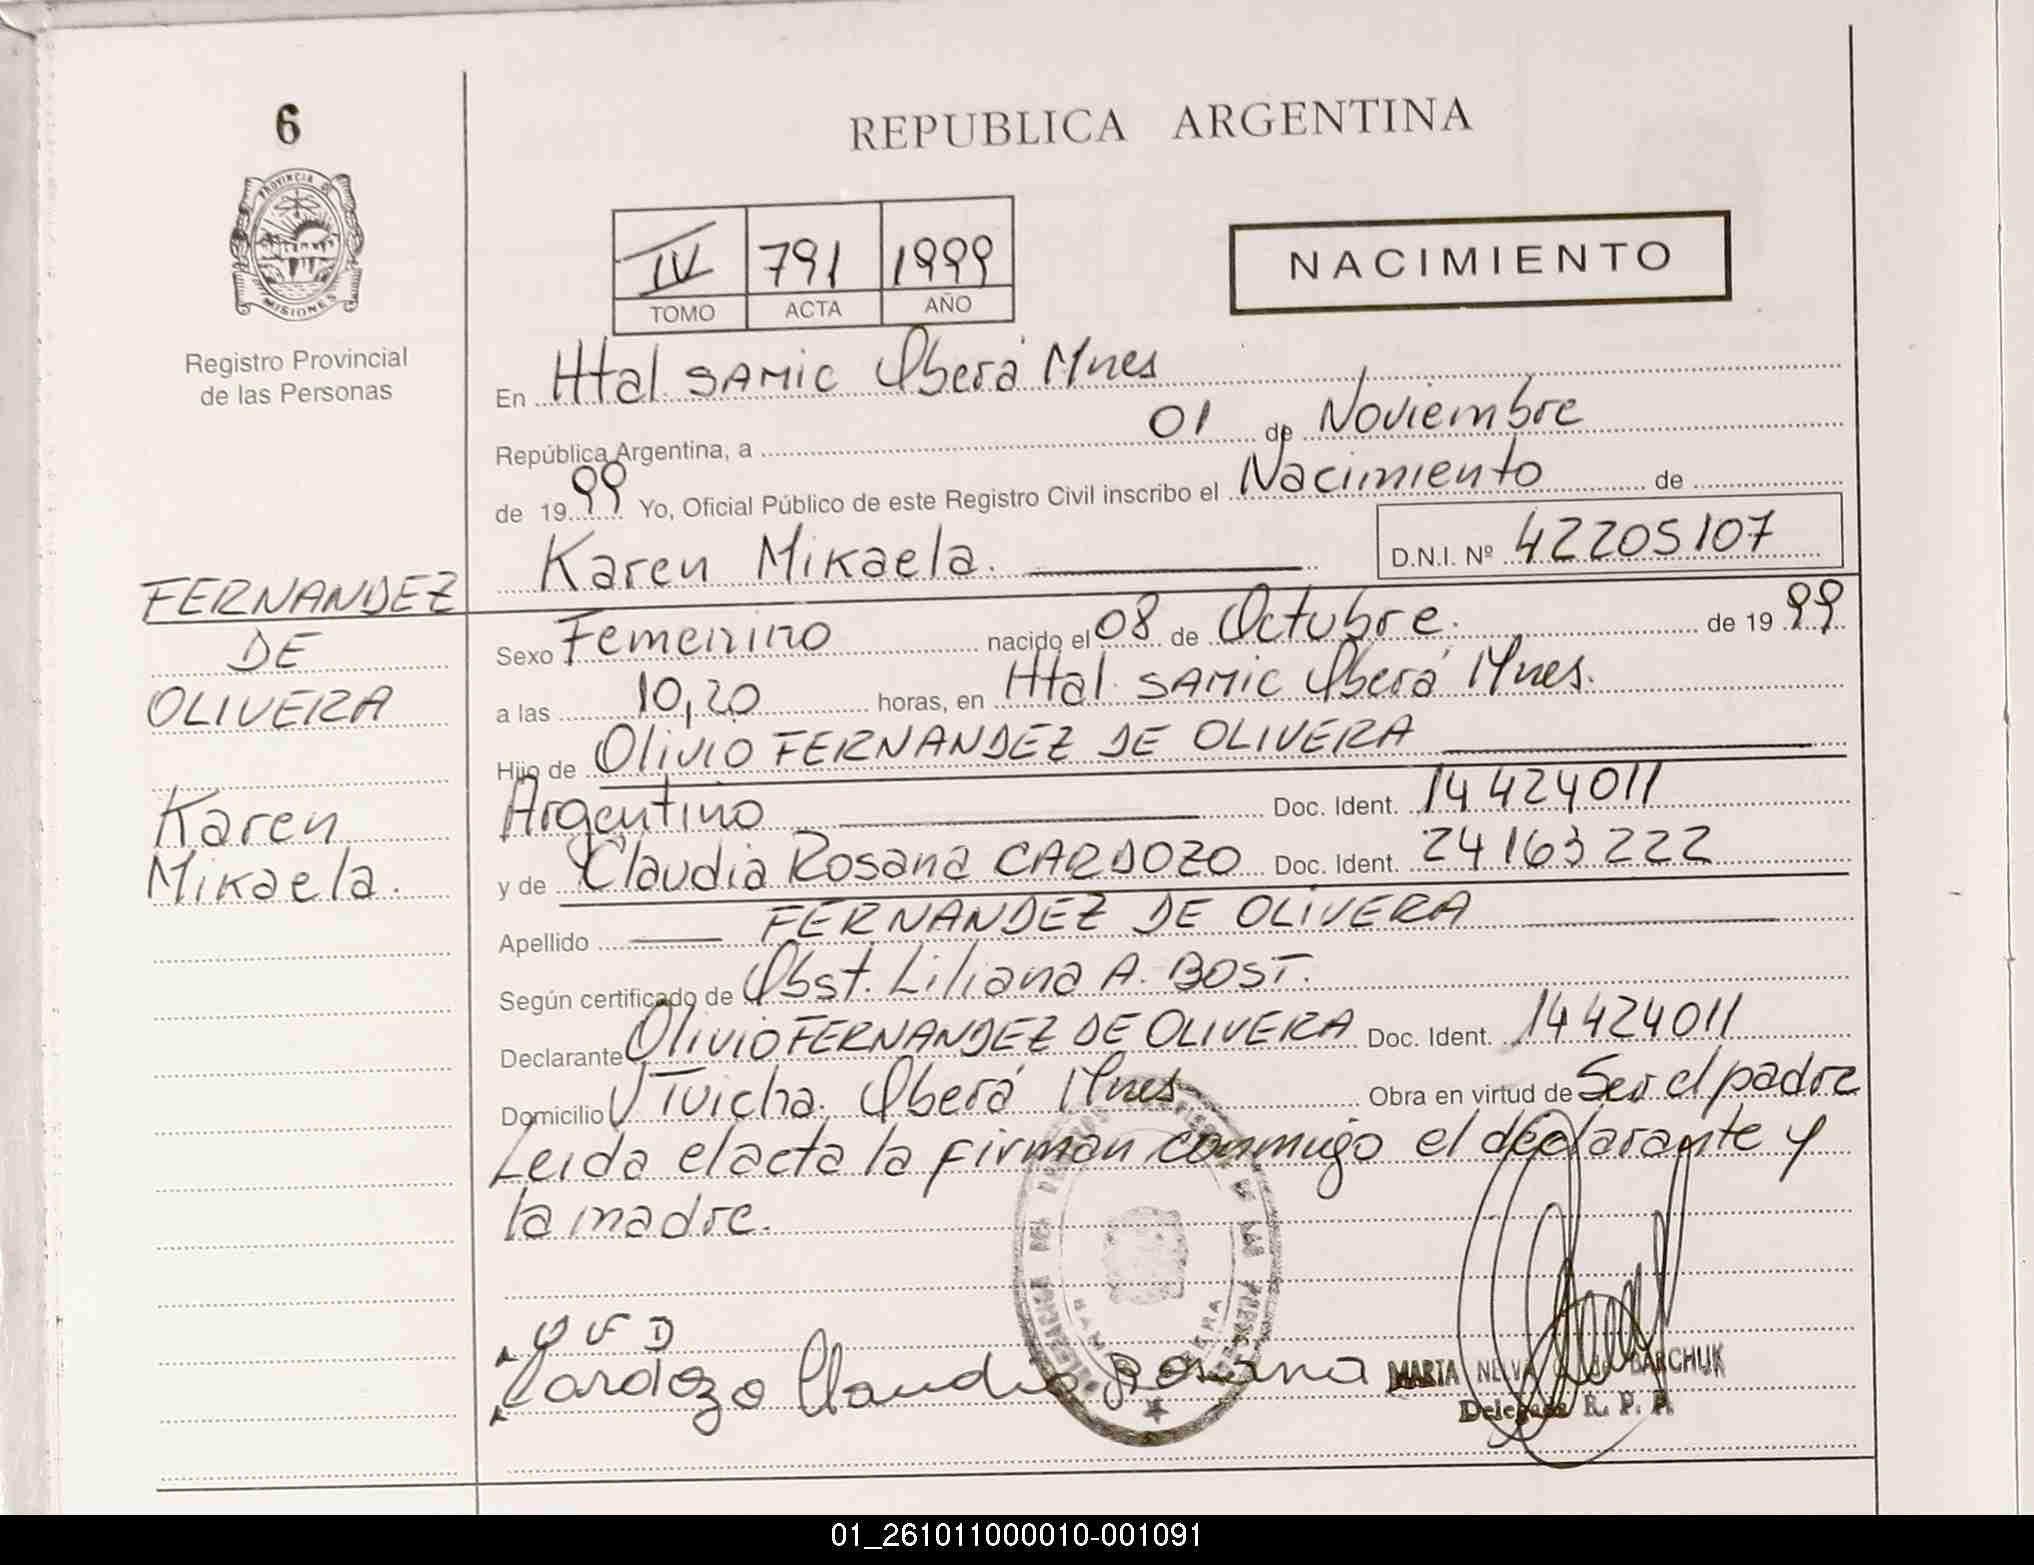 6
REPUBLICA ARGENTINA
PROVINCIA DE
MISIONES
IV 791 1999
TOMO ACTA AÑO
NACIMIENTO
Registro Provincial
de las Personas
En Htal SAMIC Oberá Mnes
República Argentina, a 01 de Noviembre
de 1999 Yo, Oficial Público de este Registro Civil inscribo el Nacimiento de
Karen Mikaela. D.N.I. Nº 42205107
FERNANDEZ
DE
OLIVERA
Karen
Mikaela.
Sexo Femenino nacido el 08 de Octubre. de 1999
a las 10,20 horas, en Htal SAMIC Oberá Mnes.
Hijo de Olivio FERNANDEZ DE OLIVERA
Argentino Doc. Ident. 14424011
y de Claudia Rosana CARDOZO Doc. Ident. 24163222
Apellido FERNANDEZ DE OLIVERA
Según certificado de Obst. Liliana A. BOST.
Declarante Olivio FERNANDEZ DE OLIVERA Doc. Ident. 14424011
Domicilio Oberá Mnes Obra en virtud de Ser el padre
Leida el acta la firman conmigo el declarante y
la madre.
O F D
Cardozo Claudia Rosana
MARTA
Delegada R. P. P.
01_261011000010-001091